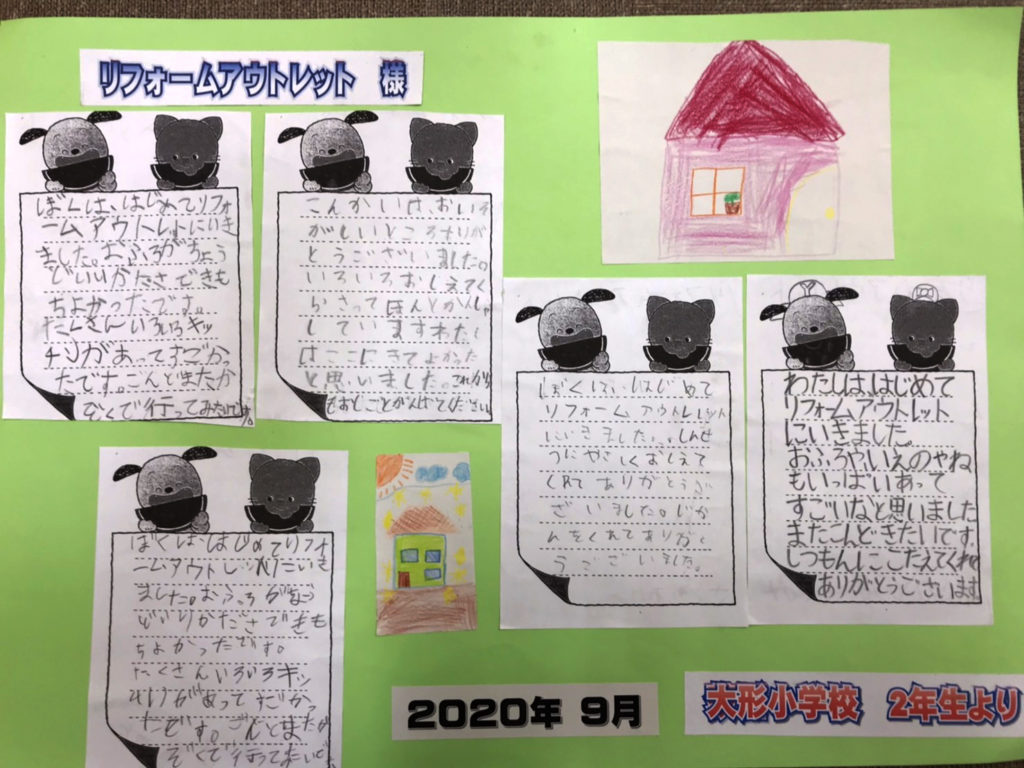 リフォームアウトレット 様
ぼくは、はじめてリフォ
ームアウトレットにいき
ました。おふろがちょう
どいいかたさできも
ちよかったです。
たくさんいろいろキッ
チンがあってすごかっ
たです。こんどまたか
ぞくで行ってみたいです。
こんかいは、おいそ
がしいところありが
とうございました。
いろいろおしえてく
ださって
しています。わたし
はここにきてよかった
と思いました。これから
もおしごとがんばってください。
ぼくは、はじめて
リフォームアウトレット
にいきました。しんせ
つにやさしくおしえて
くれてありがとうご
ざいました。じか
んをくれてありがと
うございました。
わたしは、はじめて
リフォームアウトレット
にいきました。
おふろや、いえのやね
もいっぱいあって
すごいなと思いました
またこんどきたいです。
しつもんにこたえてくれて
ありがとうございます
ぼくははじめてリフォ
ームアウトレットにいき
ました。おふろがちょう
どいいかたさできも
ちよかったです。
たくさんいろいろキッ
があって
たです。こんどまたか
ぞくで行ってみたいで
2020年 9月
大形小学校 2年生より